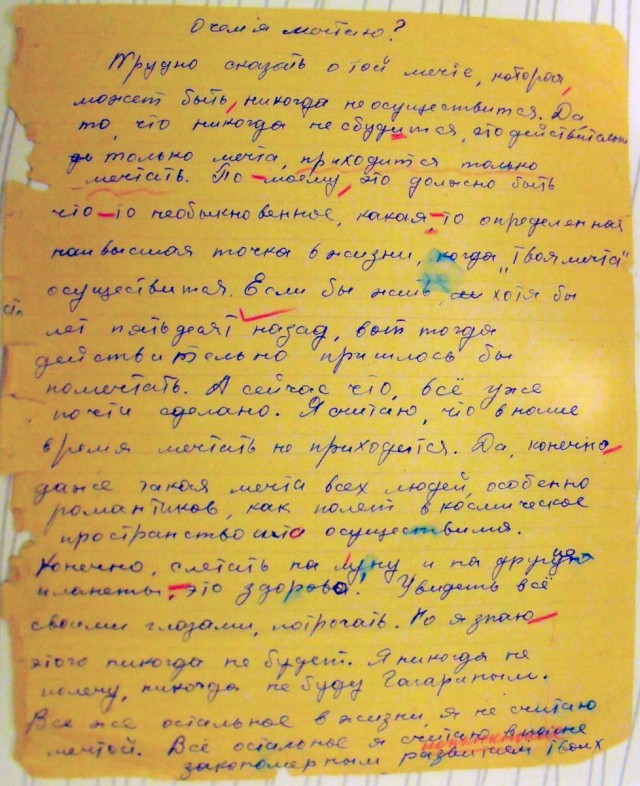 О чем я мечтаю?
Трудно сказать о той мечте, которая,
может быть, никогда не осуществится. Да
то, что никогда не сбудится, это действительно
только мечта, приходится только
мечтать. По-моему, это должно быть
что-то необыкновенное, какая-то определенная
наивысшая точка в жизни, когда "твоя мечта"
осуществится. Если бы жить, хотя бы
лет пятьдесят назад, вот тогда
действительно пришлось бы
помечтать. А сейчас что, всё уже
почти сделано. Я считаю, что в наше
время мечтать не приходится. Да, конечно
даже такая мечта всех людей, особенно
романтиков, как полет в космическое
пространство осуществимя.
Конечно, слетать на луну и на другие
планеты, - это здорово. Увидеть всё
своими глазами, потрогать. Но я знаю
этого никогда не будет. Я никогда не
полечу, никогда не буду Гагариным.
Все же остальное в жизни, я не считаю
мечтой. Всё остальное я считаю
закономерным развитием твоих